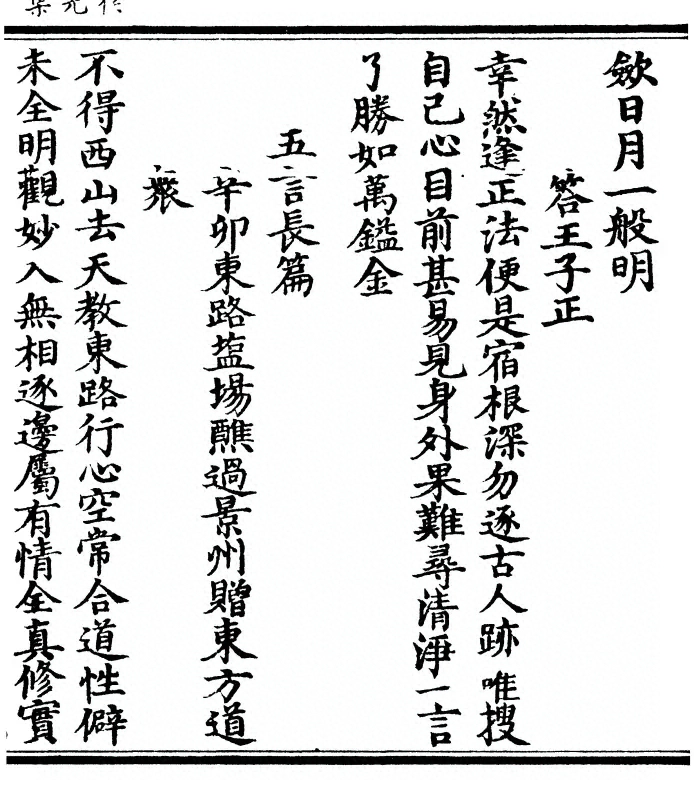 歛日月一般明
答王子正
幸然逢正法便是宿根深勿逐古人跡唯搜
自己心目前甚易見身外果難尋清淨一言
了勝如萬鎰金
五言長篇
辛卯東路塩場醮過景州贈東方道
衆
不得西山去天教東路行心空常合道性僻
未全明觀妙入無相逐邊屬有情全真修實